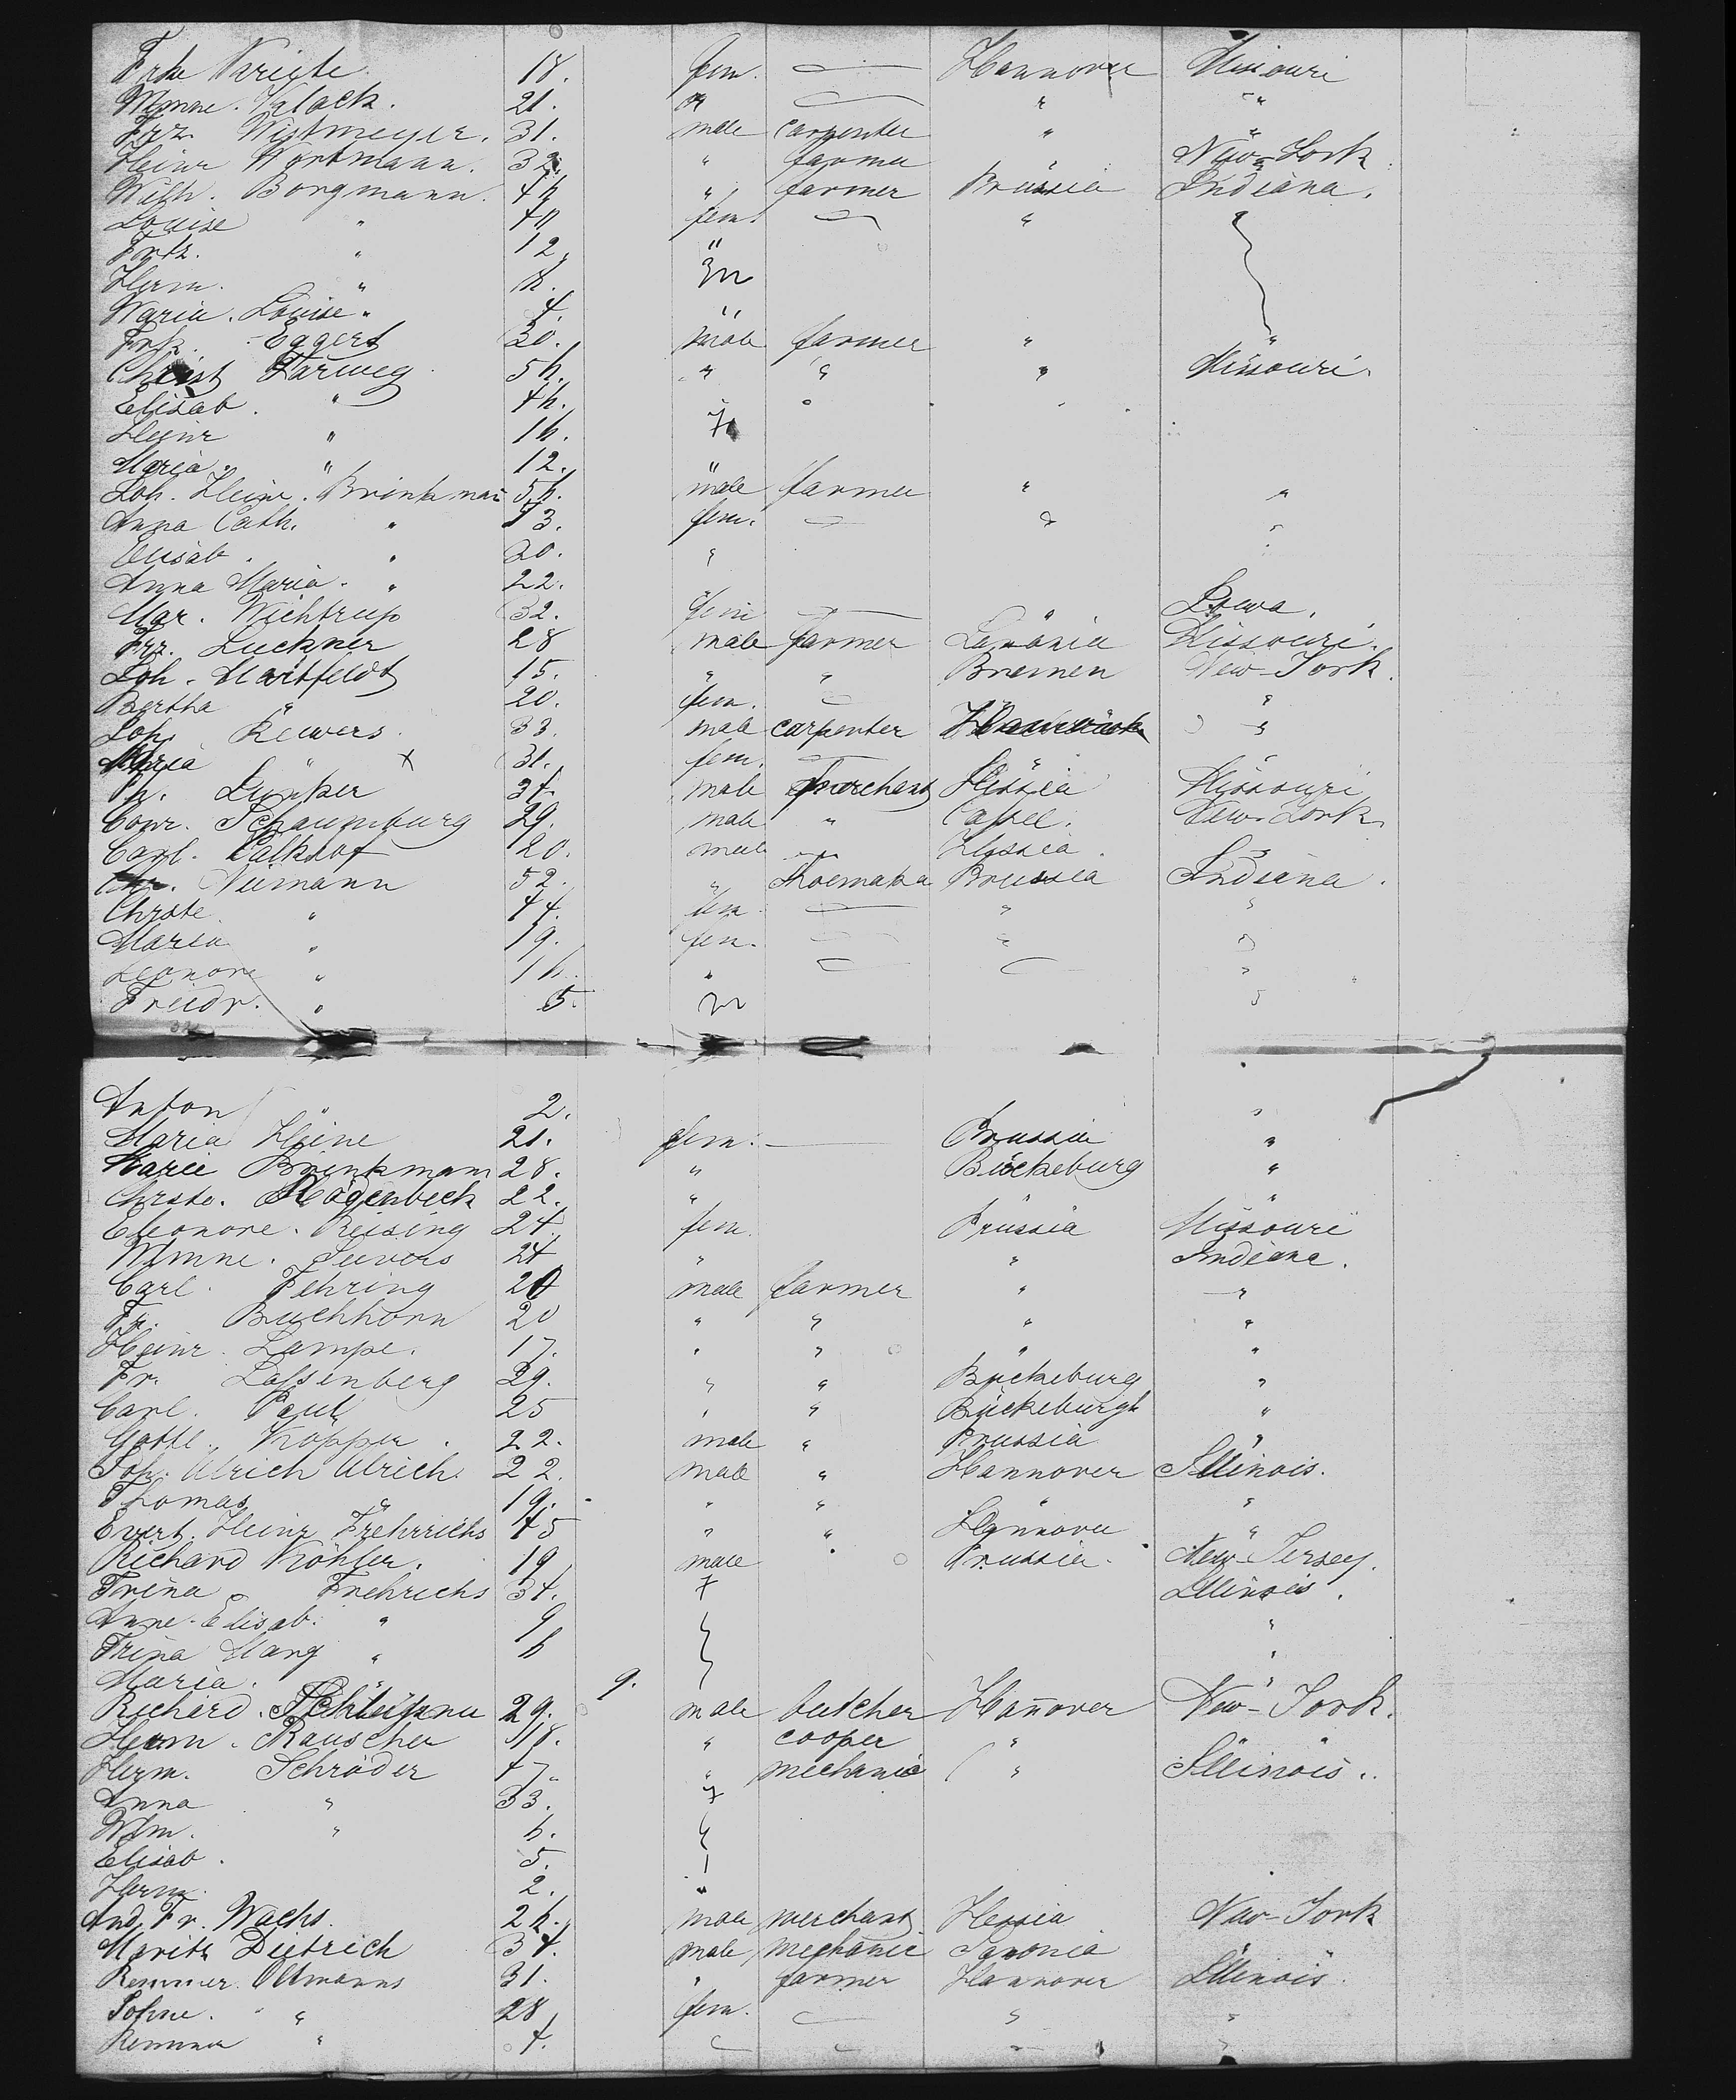 18. fem. — Hannover Missouri
21. " — " "
Frz. Westmeyer. 31. male carpenter " "
Heinr Wortmann. 32. " farmer New-York
Wilh. Borgmann. " farmer Prussia Indiana.
Louise " fem. — "
Frtz. " 12. "
Herm. " m
Maria. Louise " 4. "
Frtz. Eggert 30. male farmer " "
Christ Farweg " " " Missouri.
Elisab. "
Heinr " 16.
Maria. " 12. "
Joh. Heinr. Brinkman 56. male farmer " "
Anna Cath. " 53. fem. — " "
Elisab. " 20. "
Anna Maria. " 22.
Mar. Wichtrup 32. fem — " Iowa.
Frz. Luckner 28 male farmer Missouri.
Joh. Martfeldt 15. " " Bremen New-York.
Bertha " 20. fem. — "
Joh. Reewers 33. male carpenter "
Maria " x 31. fem. — "
34 male merchant Hessia Missouri
Conr. Schaumburg 29. male " Cassel. New-York
Carl. Kalkhof 20. male " Hessia. "
Chr. Niemann 52. " Shoemaker Prussia Indiana.
Christe " 44. fem. — " "
Maria " 19. fem. — " "
Leonore " 16. " "
Freidr. " 5. m "
Anton " 2. "
Maria Heine 21. fem. — Prussia "
Marie Brinkmann 28. " Bückeburg "
Christe. Rodenbeck 22. " " "
Eleonore. Reising 24. fem. Prussia Missouri
Wmine. Sievers 24 " " Indiana.
Carl. Fehring 20 male farmer " "
Fr. Buchhorn 20 " " " "
Heinr. Lampe. 17. " " " "
Fr. Lassenberg 29. " " Bückeburg "
Carl. Paul 25 " " Bückeburgh "
Gottl. Kopper. 22. male " Prussia "
Joh. Ulrich Ulrich. 22. male " Hannover Illinois.
Thomas " 19. " " " "
Evert. Heinr Frehrichs 45 " " Hannover "
Richard Köhler. 19 male " Prussia. New-Jersey.
Trina Frehrichs 34. f Illinois.
Anne-Elisab. " 9 "
Trina Marg " 6 "
Maria. " 9. "
Richard. 29. male butcher Hannover New-York.
Herm. Rauscher 18. " cooper " "
Herm. Schröder 47. " mechanic " Illinois.
Anna " 33. f
Wm. " 6.
Elisab. 5.
Herm. 2. "
And. Fr. Wachs. 26. male merchant Hessia New-York
Moritz Dietrich 34. male mechanic Saxonia "
Remmer Oltmanns 31. " farmer Hannover Illinois.
" 28 fem. — " "
Remmer " 4. " " " "